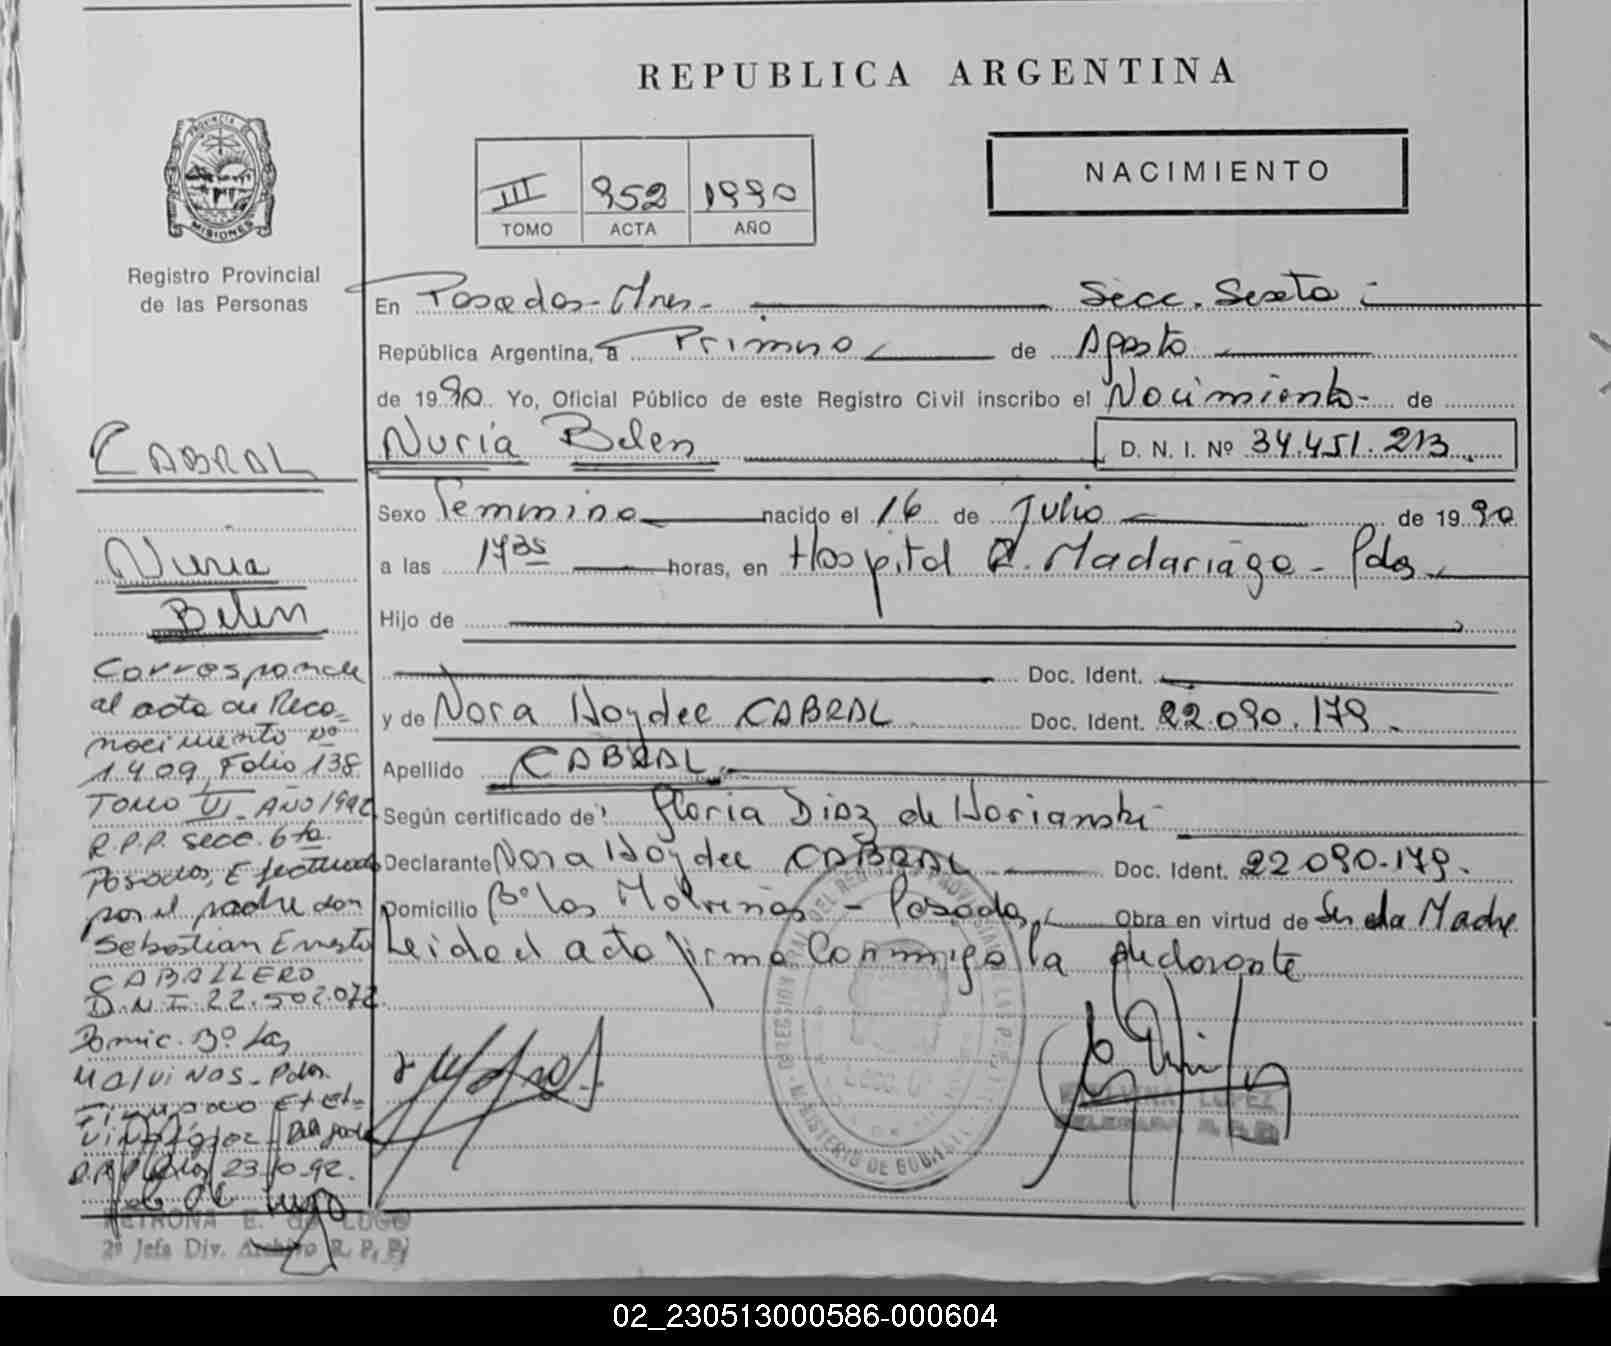 REPUBLICA ARGENTINA
PROVINCIA DE
MISIONES
Registro Provincial
de las Personas
III 952 1990
TOMO ACTA AÑO
NACIMIENTO
En Posadas - Mnes - Secc. Sexta
República Argentina, a Primero de Agosto
de 1990. Yo, Oficial Público de este Registro Civil inscribo el Nacimiento - de
Nuria Belen D. N. I. Nº 34.451.213
Sexo Femenino nacido el 16 de Julio de 1990
a las 1735 horas, en Hospital R. Madariaga - Pdas
Hijo de
Doc. Ident.
y de Nora Haydee CABRAL Doc. Ident. 22.090.179.
Apellido CABRAL
Según certificado de Gloria Diaz de
Declarante Nora Haydee CABRAL Doc. Ident. 22.090.179.
Domicilio Bº Las Malvinas - Posadas Obra en virtud de Ser la Madre
Leida el acta firma conmigo la declarante
CABRAL
Nuria
Belen
Corresponde
al acta de Reco-
nocimiento Nº
1.409, Folio 138
TOMO VI AÑO 1992
R.P.P. secc. 6ta.
Posadas, Efectuado
por el padre don
Sebastian Ernesto
CABALLERO
D.N.I. 22.502.072
Domic. Bº Las
Malvinas - Pdas.
23 92.
PETRONA E. de LUGO
2º Jefa Div. Archivo R. P. P.
LOPEZ
DELEGADA R. P. P.
MINISTERIO DE GOBIERNO
02_230513000586-000604